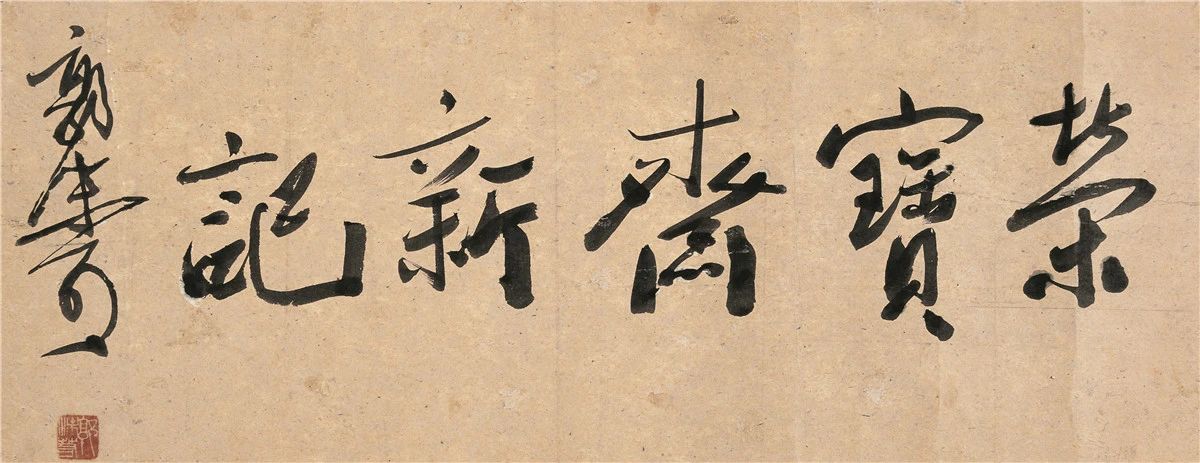 榮寶齋新記
郭沫若
郭沫若